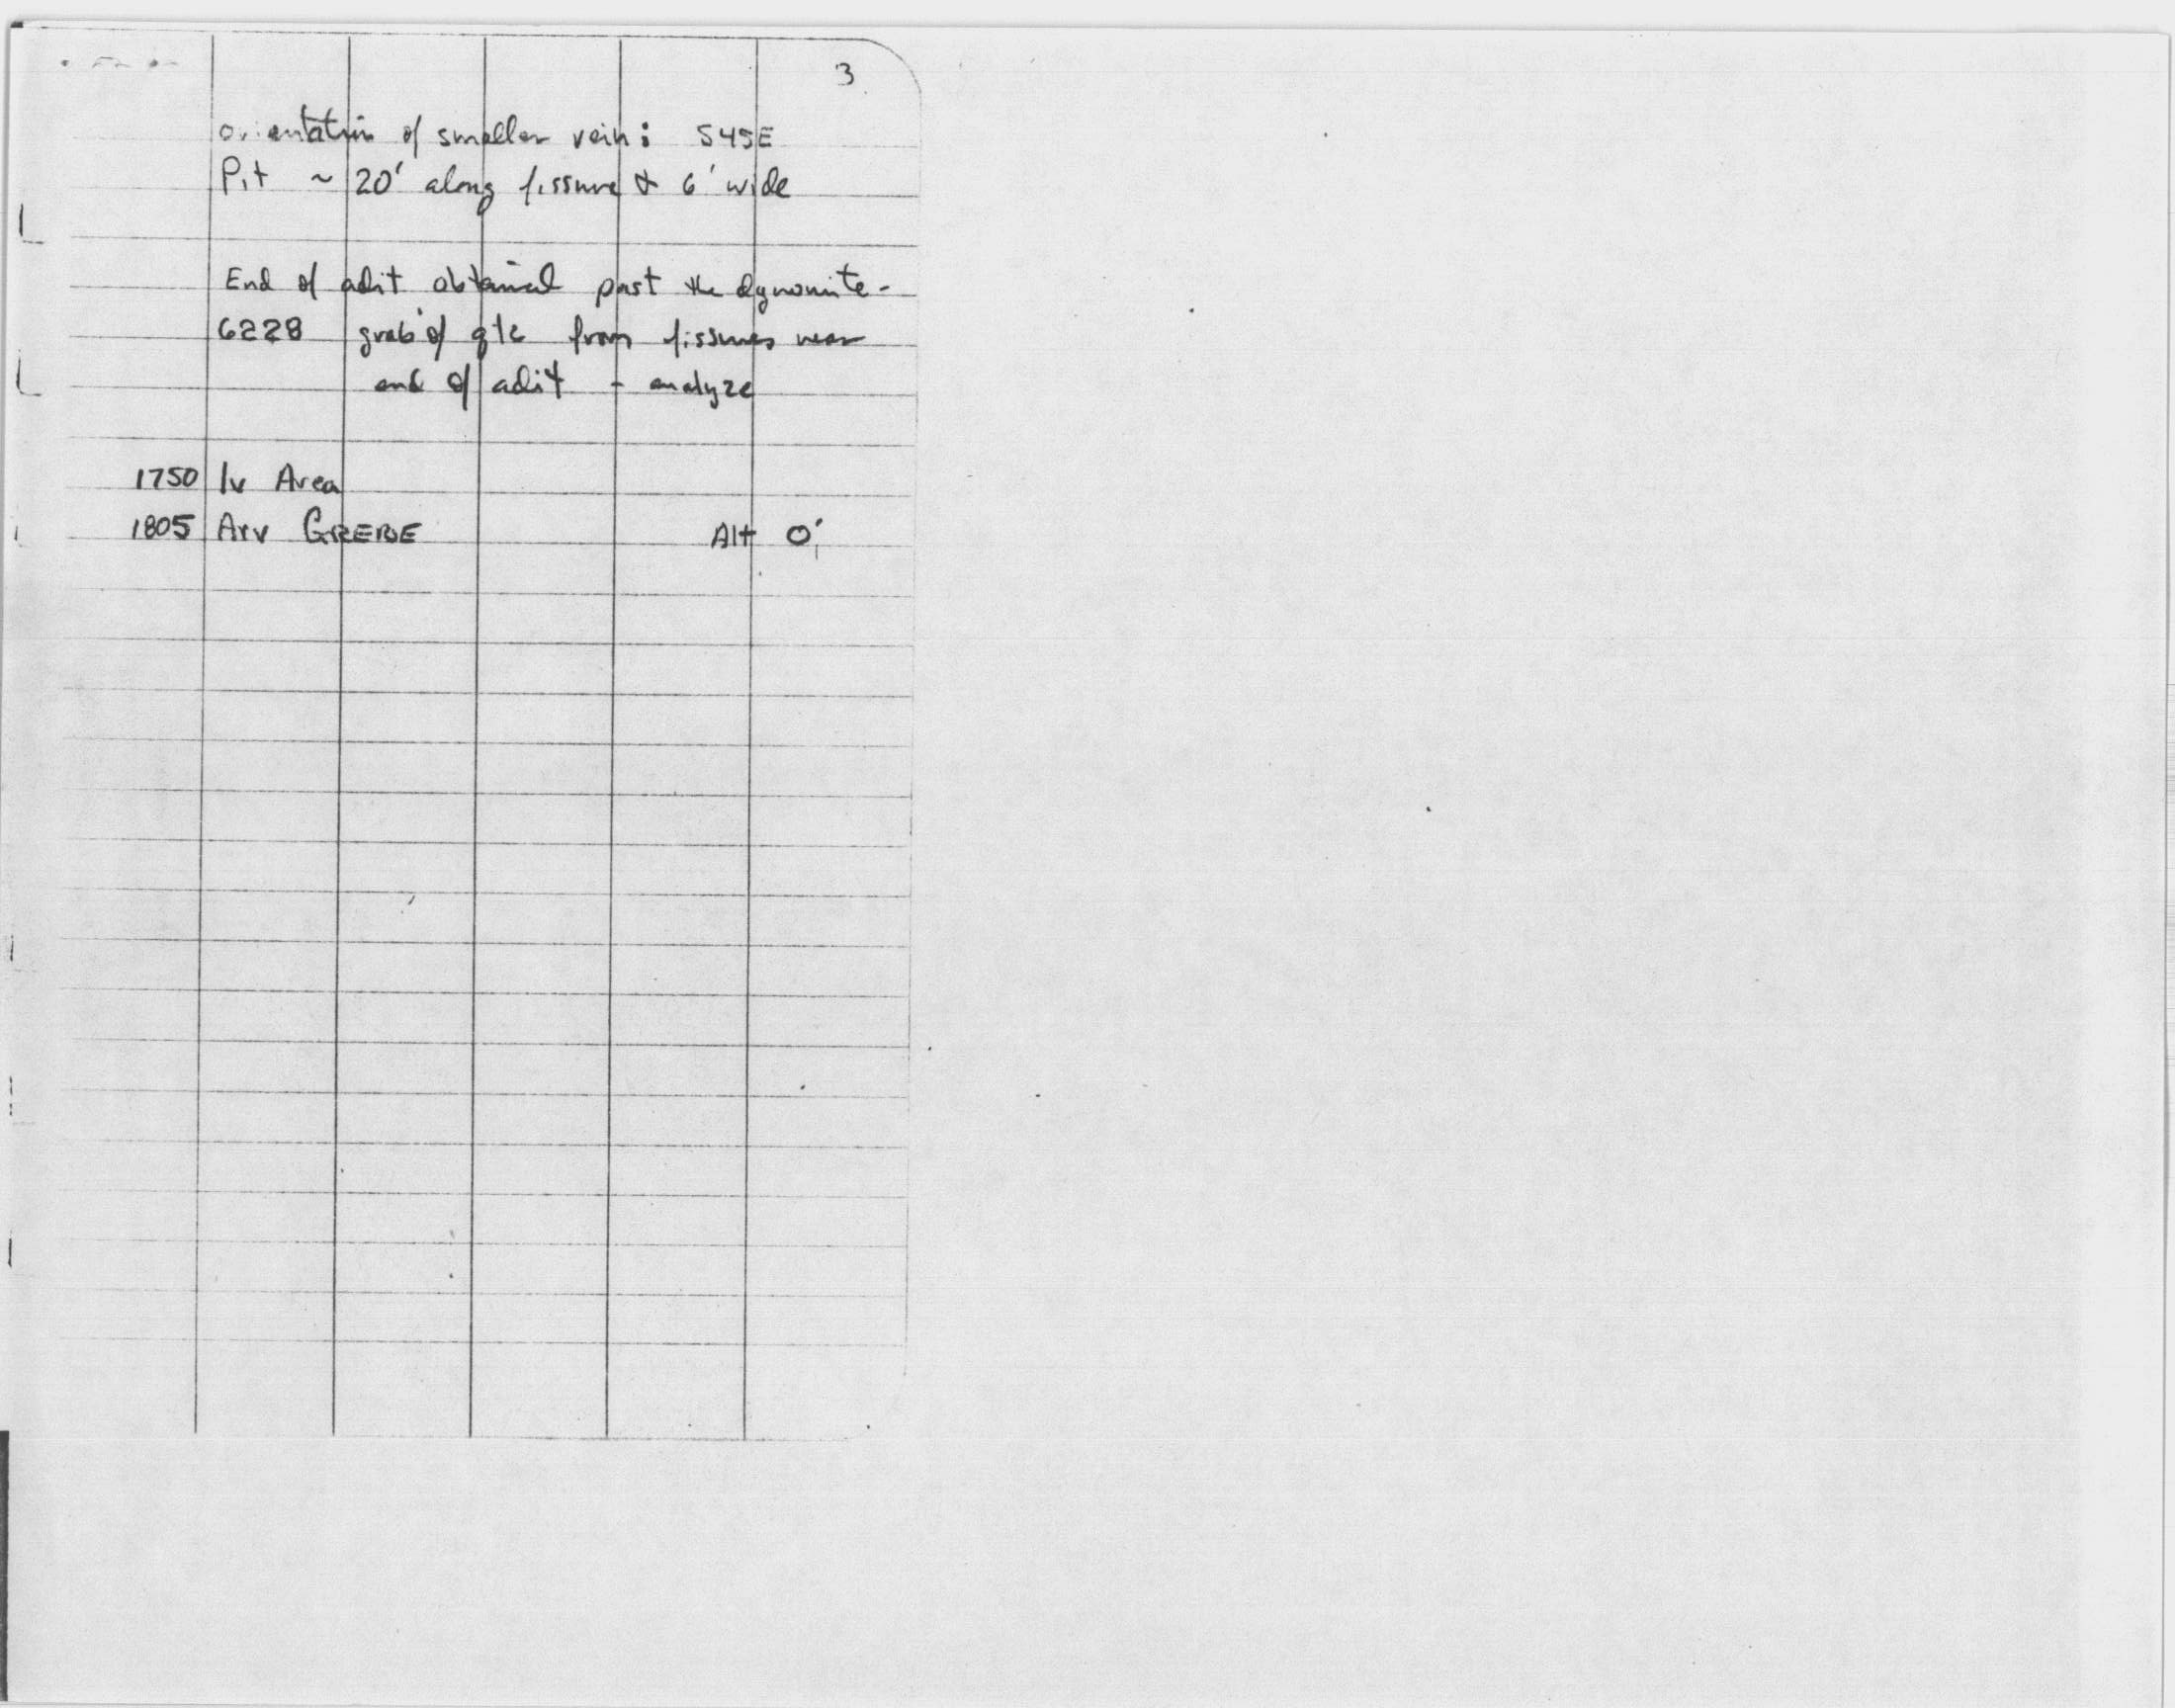 3
Orientation of smaller vein: S45E
Pit ~ 20' along fissure & 6' wide
End of adit obtained past the dynomite -
6228 grab of qtz from fissures near
end of adit - analyze
1750 lv Area
1805 Arv GREBE Alt 0'